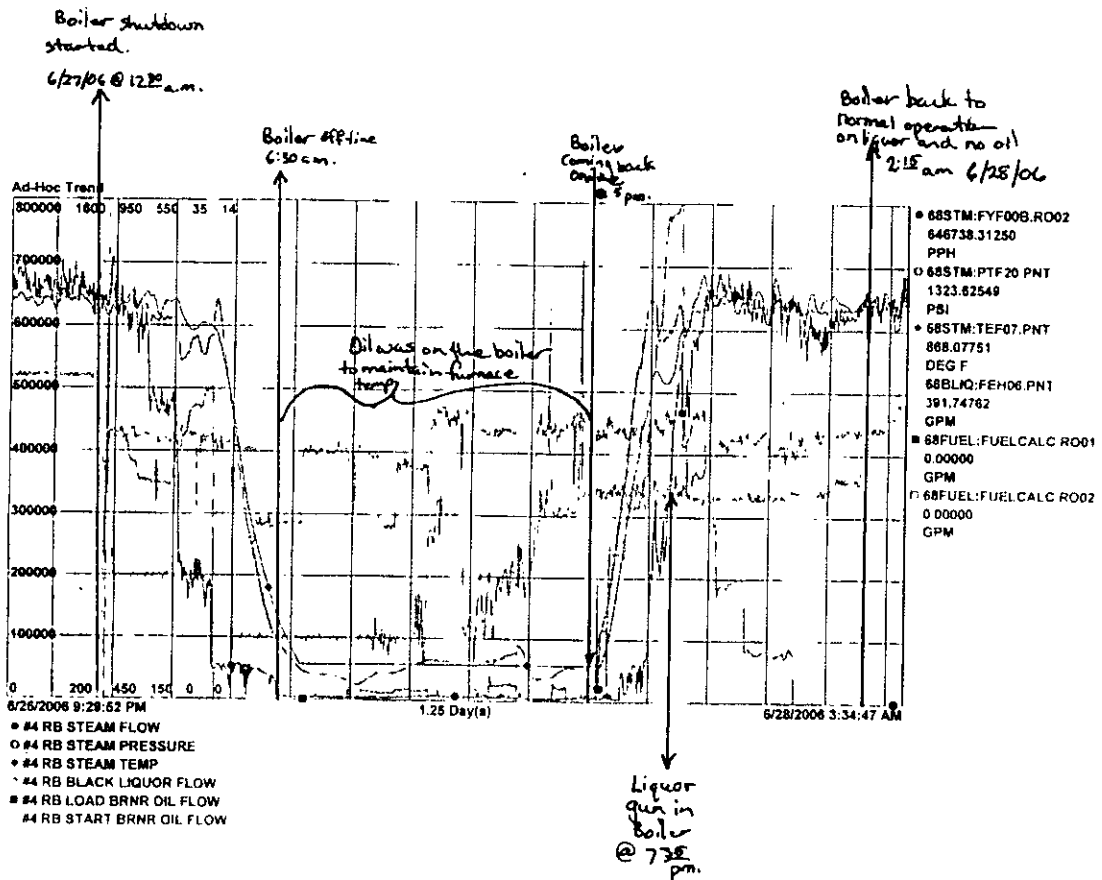 Boiler shutdown
started.
6/27/06 @ 12:30 a.m.
Boiler offline
6:30 a.m.
Boiler
Coming back
pm.
Boiler back to
normal operation
on liquor and no oil
2:15 am 6/28/06
Ad-Hoc Trend
800000 1800 950 550 35 14
700000
600000
500000
400000
300000
200000
100000
0 200 450 150 0 0
Oil was on the boiler
to maintain furnace
temp
68STM:FYF00B.RO02
646738.31250
PPH
68STM:PTF20.PNT
1323.62549
PSI
68STM:TEF07.PNT
868.07751
DEG F
68BLIQ:FEH06.PNT
391.74762
GPM
68FUEL:FUELCALC.RO01
0.00000
GPM
68FUEL:FUELCALC.RO02
0.00000
GPM
9:29:52 PM
1.25 Day(s)
6/28/2006 3:34:47 AM
#4 RB STEAM FLOW
#4 RB STEAM PRESSURE
#4 RB STEAM TEMP
#4 RB BLACK LIQUOR FLOW
#4 RB LOAD BRNR OIL FLOW
#4 RB START BRNR OIL FLOW
Liquor
gun in
Boiler
@
pm.